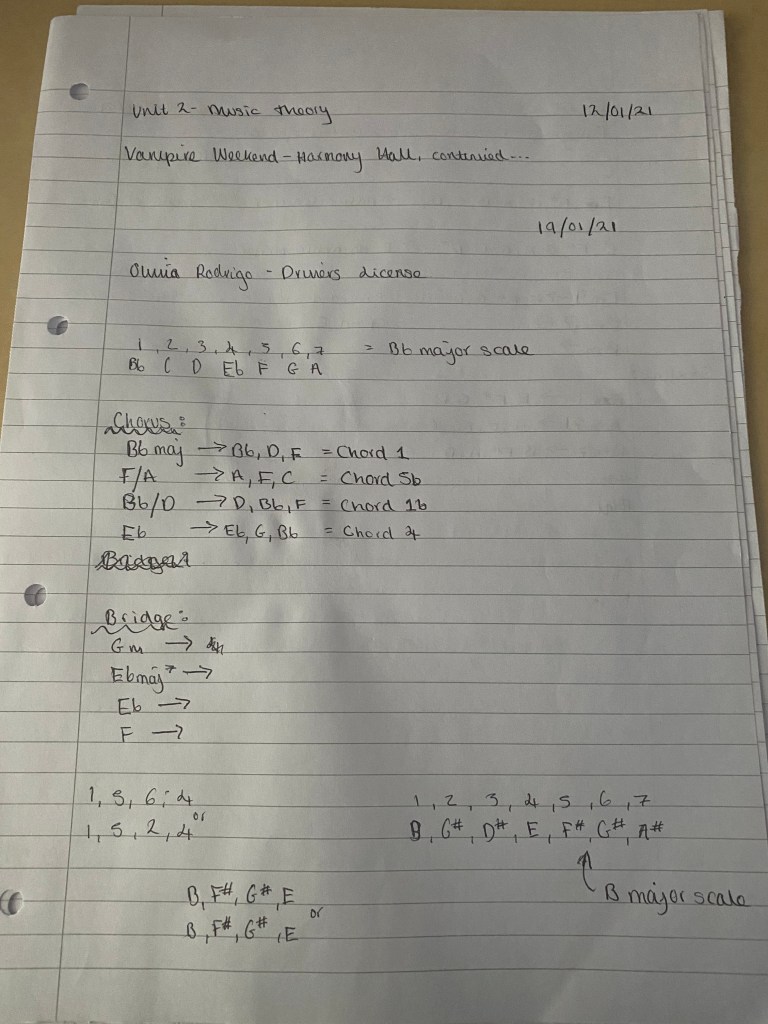 Unit 2 - Music theory 12/01/21
Vampire Weekend - Harmony Hall, continued...
19/01/21
Olivia Rodrigo - Drivers License
1, 2, 3, 4, 5, 6, 7 = Bb major scale
Bb C D Eb F G A
Chorus:
Bb maj → Bb, D, F = Chord 1
F/A → A, F, C = Chord 5b
Bb/D → D, Bb, F = Chord 1b
Eb → Eb, G, Bb = Chord 4
Bridge:
Gm →
Ebmaj7 →
Eb →
F →
1, 5, 6, 4
or
1, 5, 2, 4
1, 2, 3, 4, 5, 6, 7
B, C#, D#, E, F#, G#, A#
B major scale
B, F#, G#, E
or
B, F#, G#, E